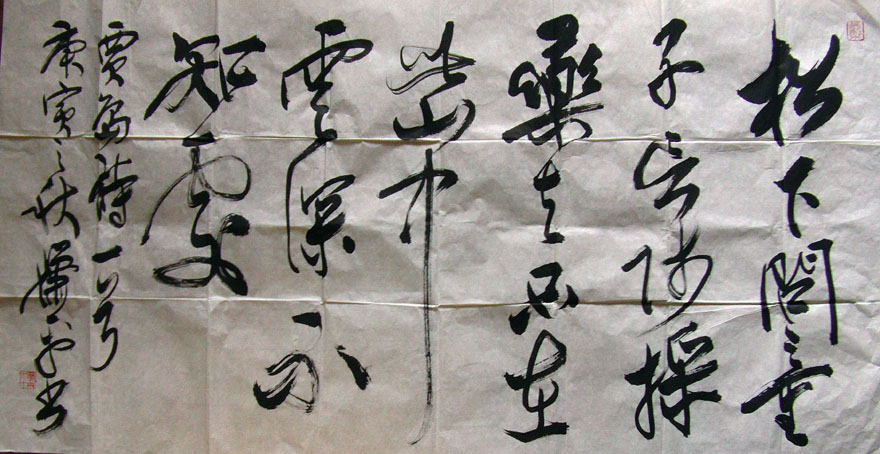 松下问童
子言师採
藥去只在
此山中
雲深不
知處
賈島诗一首
庚寅之秋書